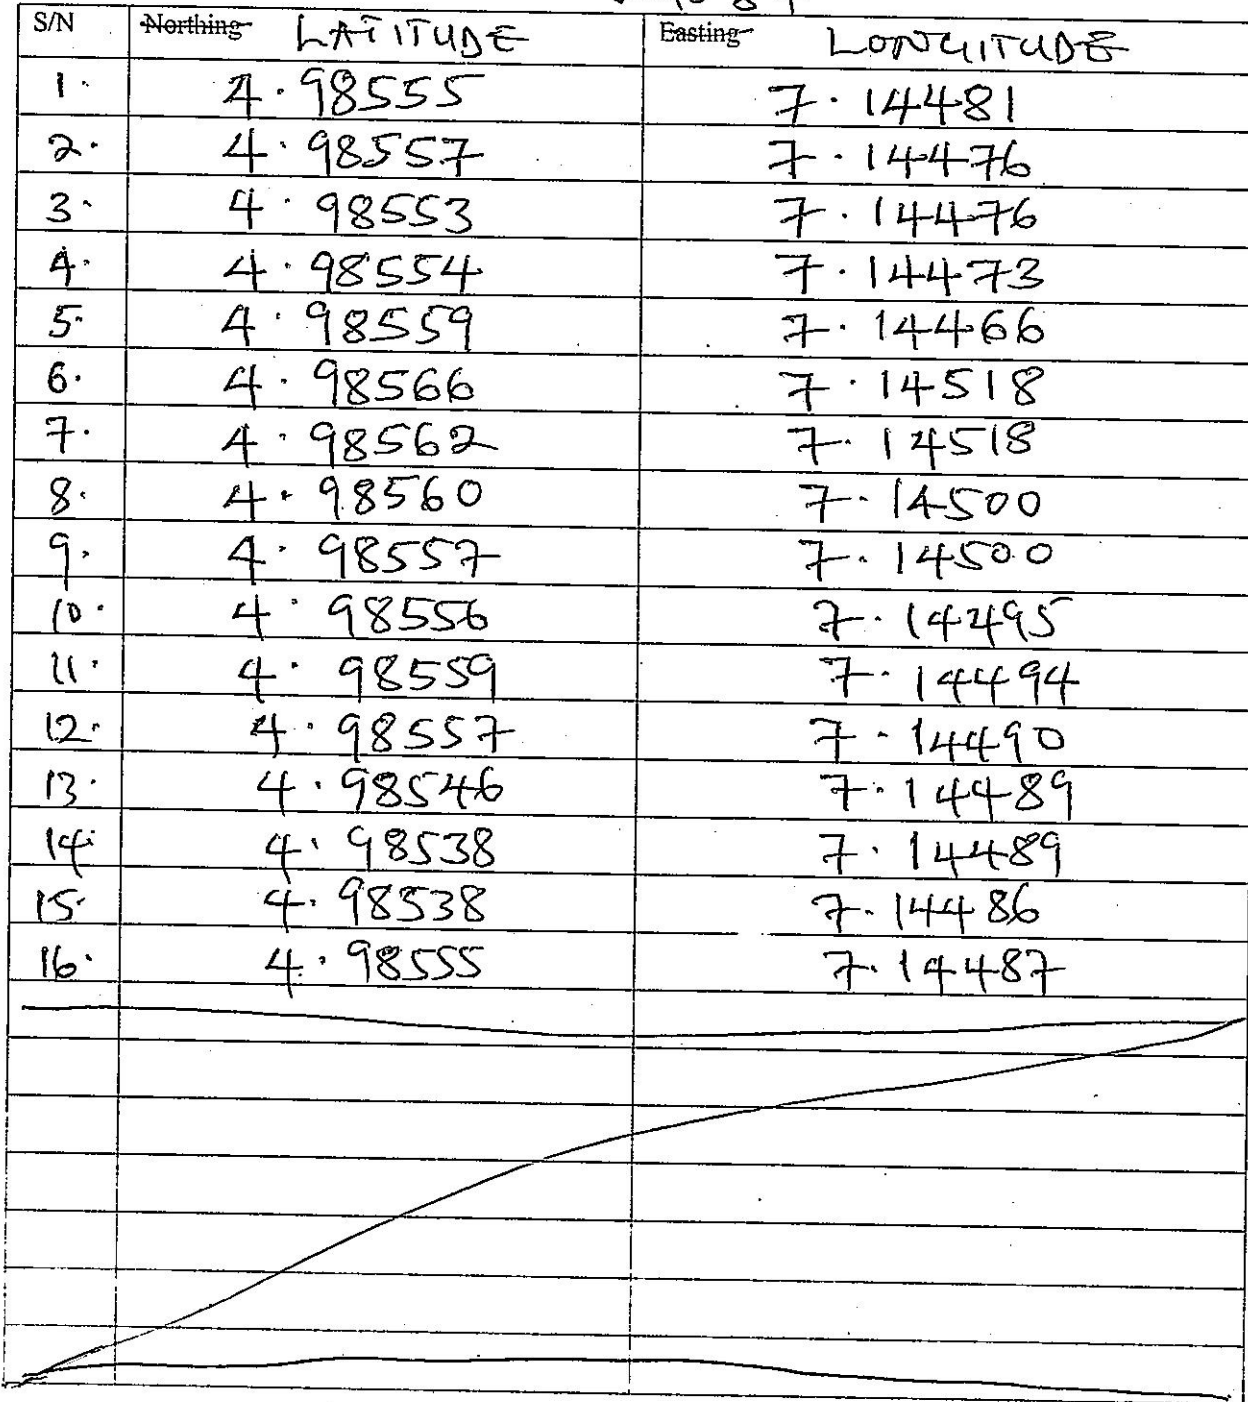 S/N Northing LATITUDE Easting LONGITUDE
1. 4.98555 7.14481
2. 4.98557 7.14476
3. 4.98553 7.14476
4. 4.98554 7.14473
5. 4.98559 7.14466
6. 4.98566 7.14518
7. 4.98562 7.14518
8. 4.98560 7.14500
9. 4.98557 7.14500
10. 4.98556 7.14495
11. 4.98559 7.14494
12. 4.98557 7.14490
13. 4.98546 7.14489
14. 4.98538 7.14489
15. 4.98538 7.14486
16. 4.98555 7.14487